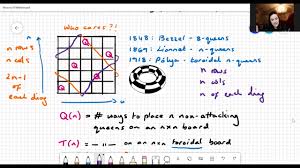 Who cares?!
n rows
n cols
2n-1
of each diag
Q
Q
Q
Q
1848: Bezzel - 8-queens
1869: Lionnet - n-queens
1918: Pólya - toroidal n-queens
n rows
n cols
n of each diag
Q(n) = # ways to place n non-attacking
queens on an n×n board
T(n) = —— " —— on an n×n toroidal board